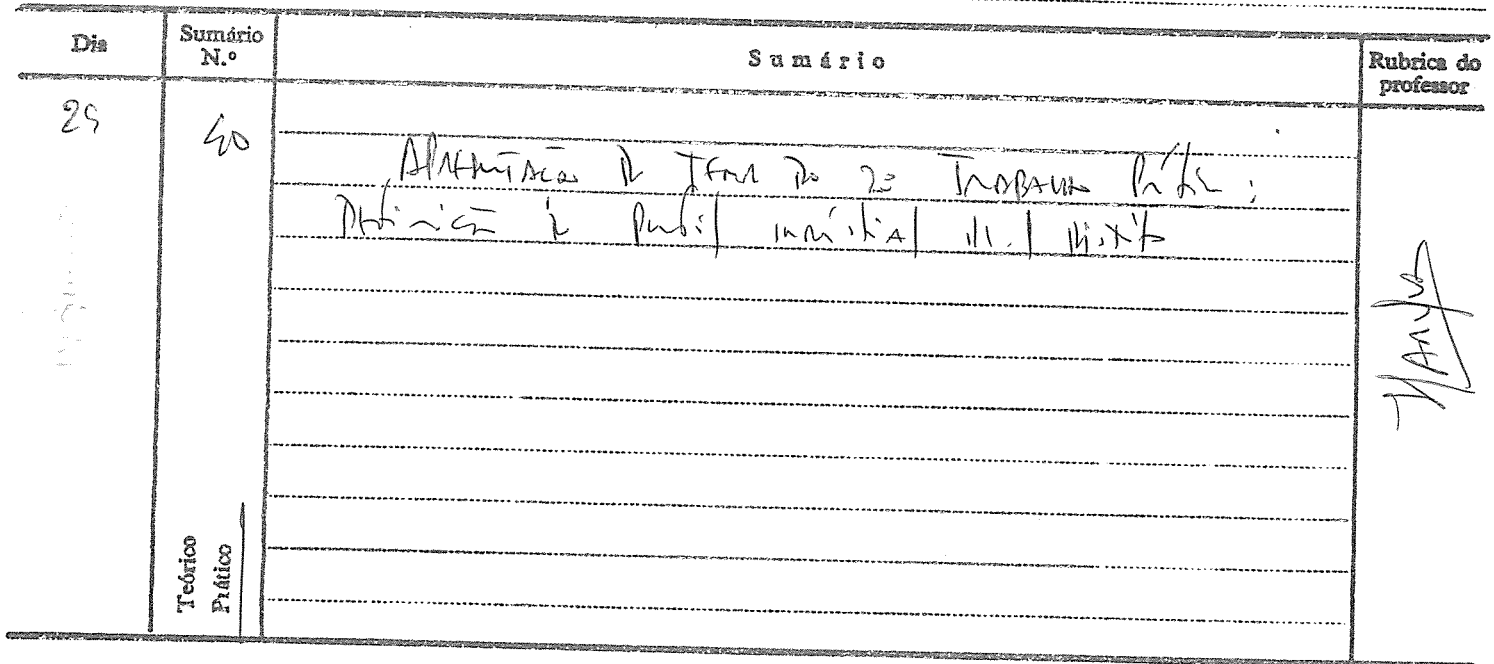 Dia
Sumário N.º
Sumário
Rubrica do professor
40
Apresentação do Tema do 2º Trabalho Prático:
Definição do Perfil industrial
Teórico
Prático